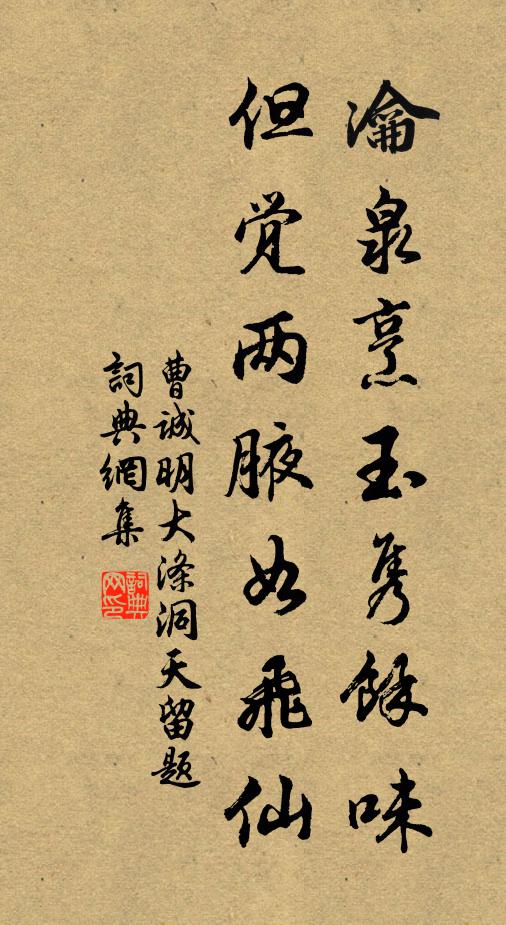 瀹泉烹玉隽餘味
但觉两腋如飛仙
曹誠明大涤洞天留题
詞典網集
詞典网印